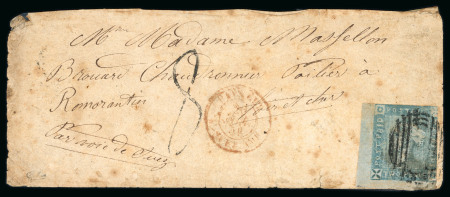 Mme Madame Massellon
Brouard Chaudronnier Poëlier à
Romorantin
Loir et cher
Par voie de Suez
8